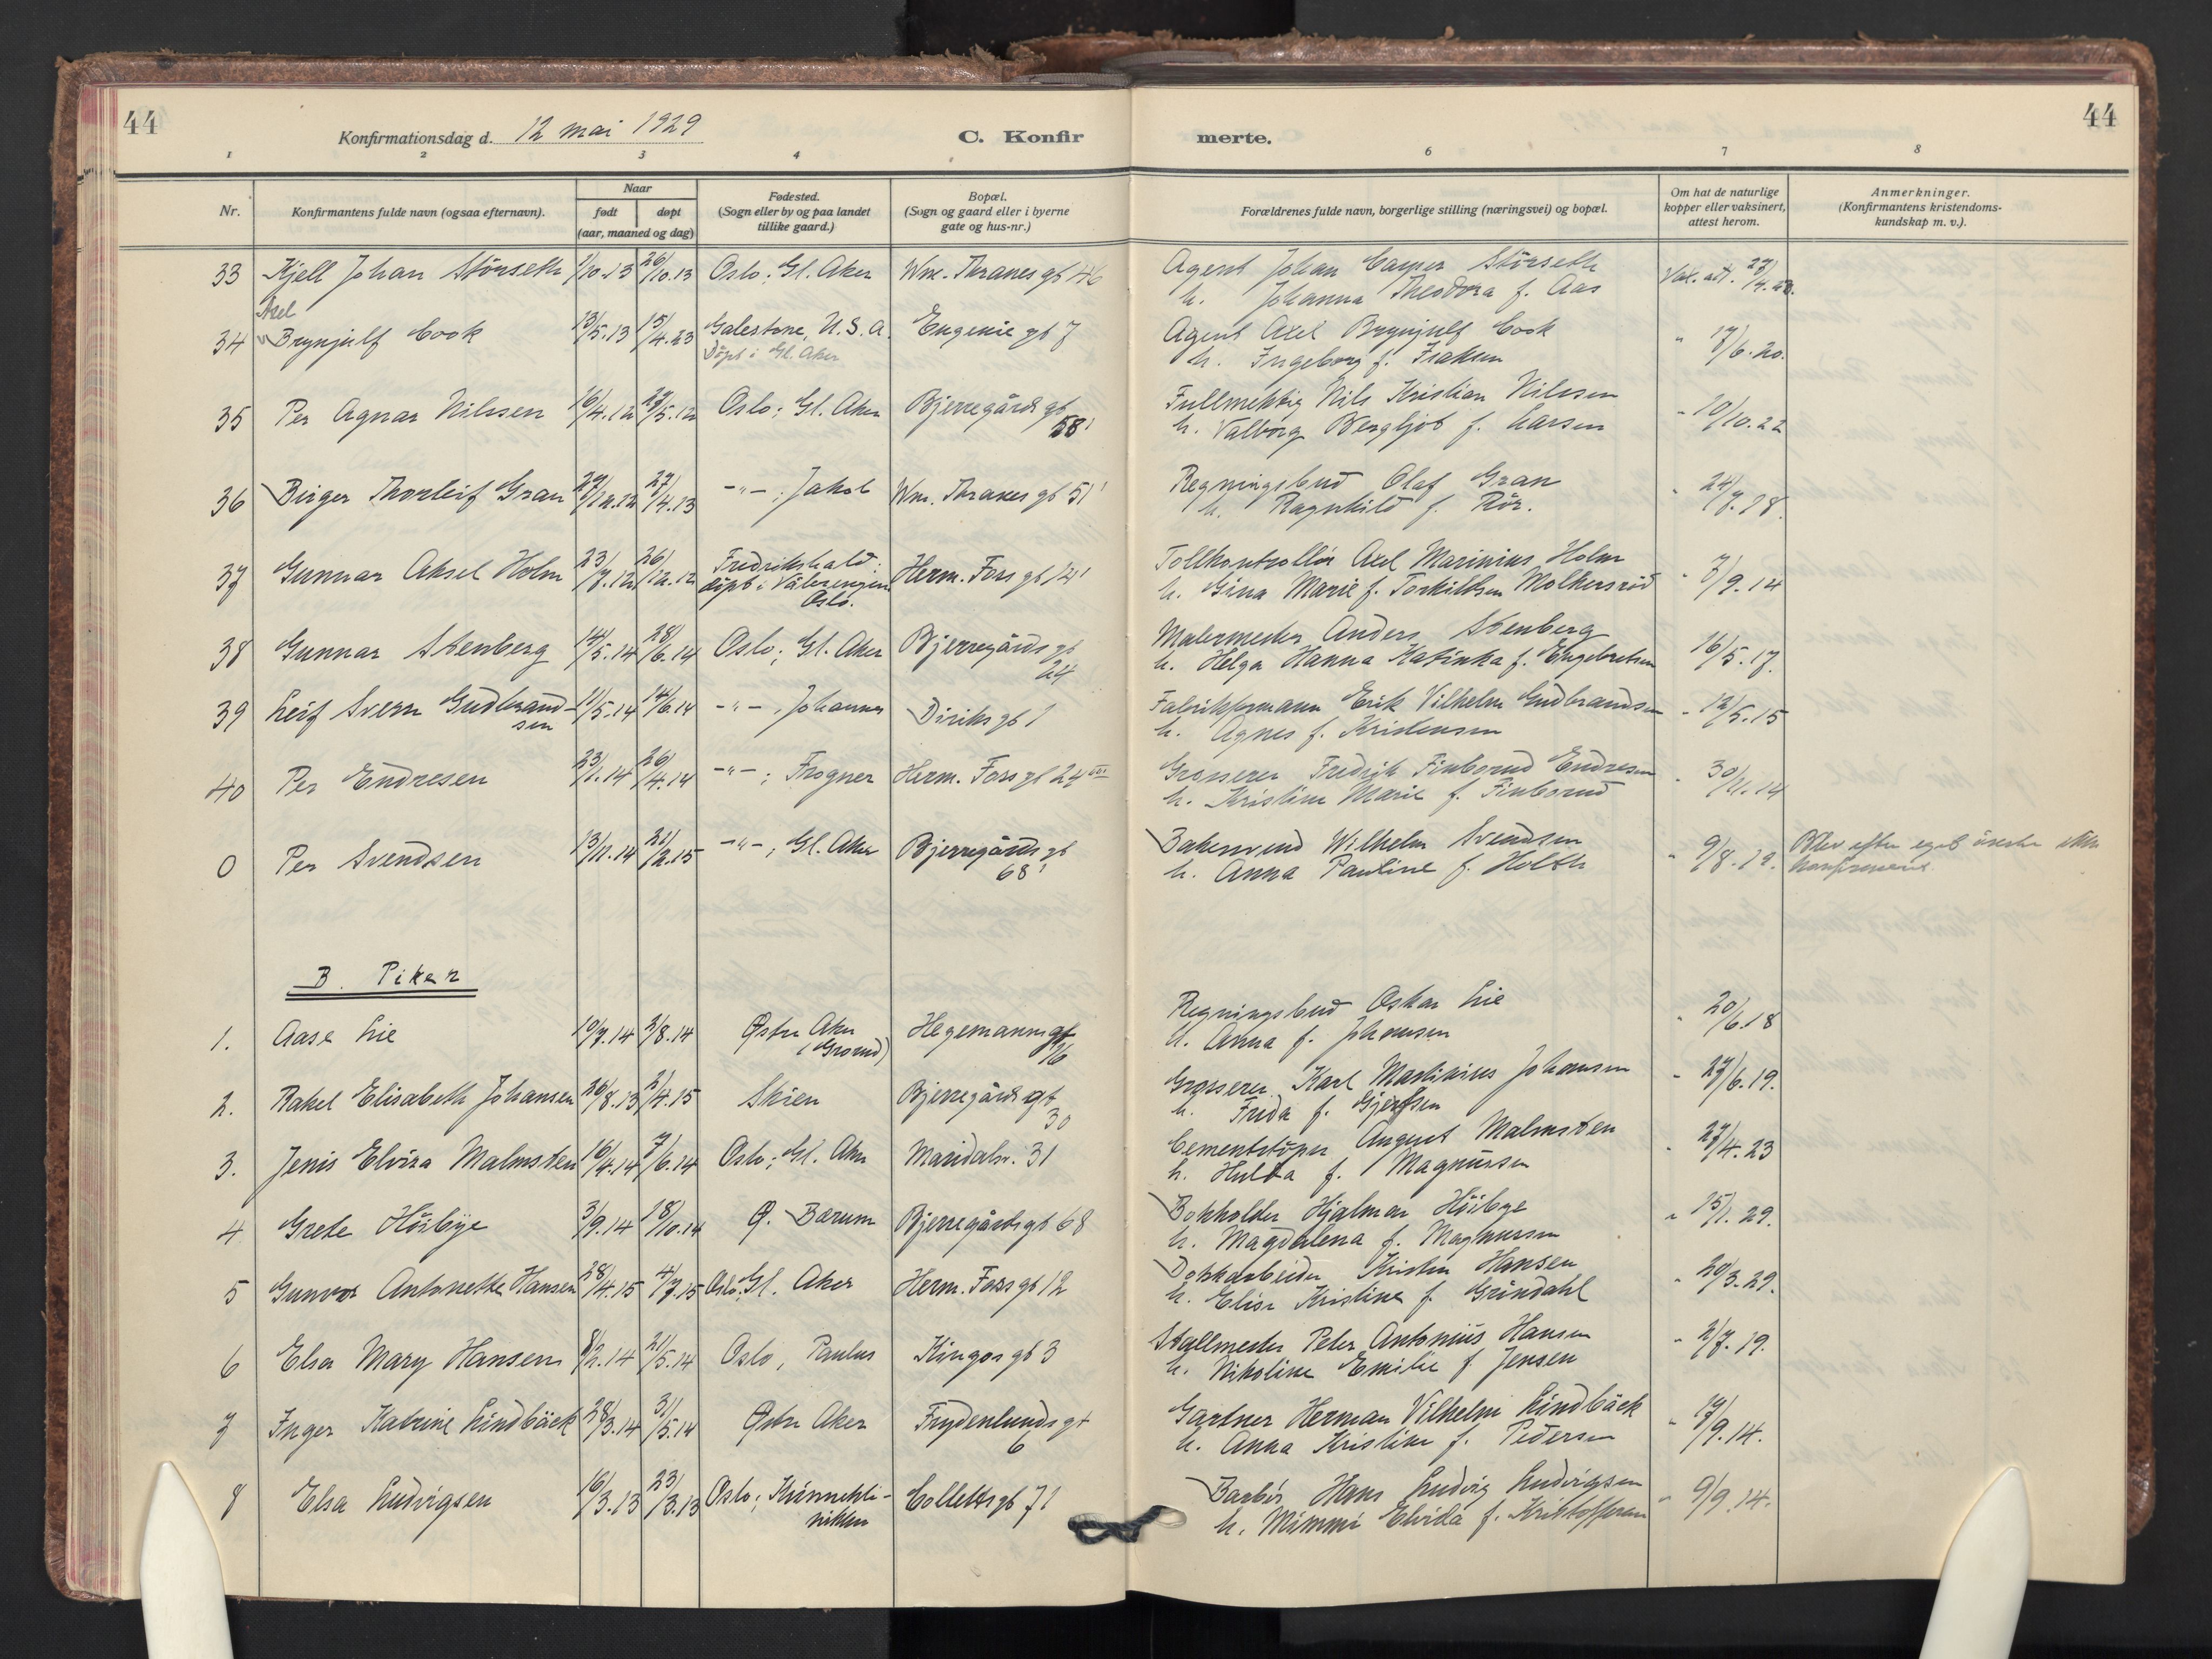 44
Konfirmationsdag d. 12 mai 1929
C. Konfirmerte.
44
1 2 3 4 6 7 8
Nr.
Konfirmantens fulde navn (ogsaa efternavn).
Naar
født døpt
(aar, maaned og dag)
Fødested.
(Sogn eller by og paa landet
tillike gaard.)
Bopæl.
(Sogn og gaard eller i byerne
gate og hus-nr.)
Forældrenes fulde navn, borgerlige stilling (næringsvei) og bopæl.
Om hat de naturlige
kopper eller vaksinert,
attest herom.
Anmerkninger.
(Konfirmantens kristendoms-
kundskap m. v.).
33 Kjell Johan Störseth 1/10.13 26/10.13 Oslo; Gl. Aker Wm. Thranes gt 46 Agent Johan Casper Störseth Vak. att.
h. Johanna Theodora f. Aas
Axel
34 Brynjulf Cook 13/5.13 15/4.23 Galestone, U.S.A. Eugenie gt 7 Agent Axel Brynjulf Cook " 17/6.20.
Döpt i Gl. Aker h. Ingeborg f. Isaksen
35 Per Agnar Nilssen 16/4.12 27/5.12 Oslo; Gl. Aker Bjerregårds gt Fullmektig Nils Kristian Nilssen " 10/10.22
58 h. Valborg Bergljot f. Larsen
36 Birger Thorleif Gran 29/12.12 27/4.13 -"-; Jakob Wm. Thranes gt 51 Regningsbud Olaf Gran " 24/7.18.
h. Ragnhild f. Rör.
37 Gunnar Aksel Holm 23/7.12 26/12.12 Fredrikshald: Herm. Foss gt 12 Tollkontrollör Axel Marinius Holm " 7/9.14
döpt i Vålerengen h. Gina Marie f. Torkildsen Molkersröd
Oslo.
38 Gunnar Stenberg 14/5.14 28/6.14 Oslo; Gl. Aker Bjerregårds gt Malermester Anders Stenberg 16/5.17.
24 h. Helga Hanna Katinka f. Engebretsen
39 Leif Svern Gudbrand- 11/5.14 14/6.14 -"-, Johannes Diriks gt 1 Fabrikformann Erik Vilhelm Gudbrandsen " 12/5.15
sen h. Agnes f. Kristensen
40 Per Endresen 23/1.14 26/4.14 -"-; Frogner Herm. Foss gt 24 Grosserer Fredrik Finborud Endresen " 30/11.14
h. Kristine Marie f. Finborud
0 Per Svendsen 13/11.14 21/2.15 -"-; Gl. Aker Bjerregårds gt Bakersvend Wilhelm Svendsen " 9/8.19. Blev efter eget önske ikke
68 h. Anna Pauline f. Holth konfirmert.
B. Piker
1. Aase Lie 10/7.14 2/8.14 Østre Aker Hegemanns gt Regningsbud Oskar Lie " 20/6.18
(Grorud) 16 h. Anna f. Johansen
2. Rakel Elisabeth Johansen 26/8.13 2/4.15 Skien Bjerregårds gt Grosserer Karl Martinius Johansen " 27/6.19.
30 h. Frida f. Gjertsen
3. Jenis Elvira Malmsten 16/4.14 7/6.14 Oslo; Gl. Aker Maridalsv. 31 Cementstöper August Malmsten " 27/4.23
h. Hulda f. Magnussen
4 Grete Höibye 3/9.14 18/10.14 Ø. Bærum Bjerregårds gt 68 Bokholder Hjalmar Höibye " 15/1.29.
h. Magdalena f. Magnussen
5 Gunvor Antonette Hansen 28/4.15 4/7.15 Oslo: Gl. Aker Herm. Foss gt 12 Dokkarbeider Kristen Hansen " 20/3.29.
h. Elise Kristine f. Gründahl
6 Elsa Mary Hansen 8/2.14 21/5.14 Oslo, Paulus Kingos gt 3 Stallmester Peter Antonius Hansen " 2/7.19.
h. Nikoline Emilie f. Jensen
7 Inger Katrine Lindbäck 28/3.14 31/5.14 Østre Aker Frydenlunds gt Gartner Herman Vilhelm Lindbäck " 19/9.14.
6 h. Anna Kristine f. Pedersen
8 Elsa Ludvigsen 16/3.13 23/3.13 Oslo; Kvinnekli- Colletts gt 71 Barbér Hans Ludvig Ludvigsen " 9/9.14.
nikken h. Mimmi Elvida f. Kristoffersen